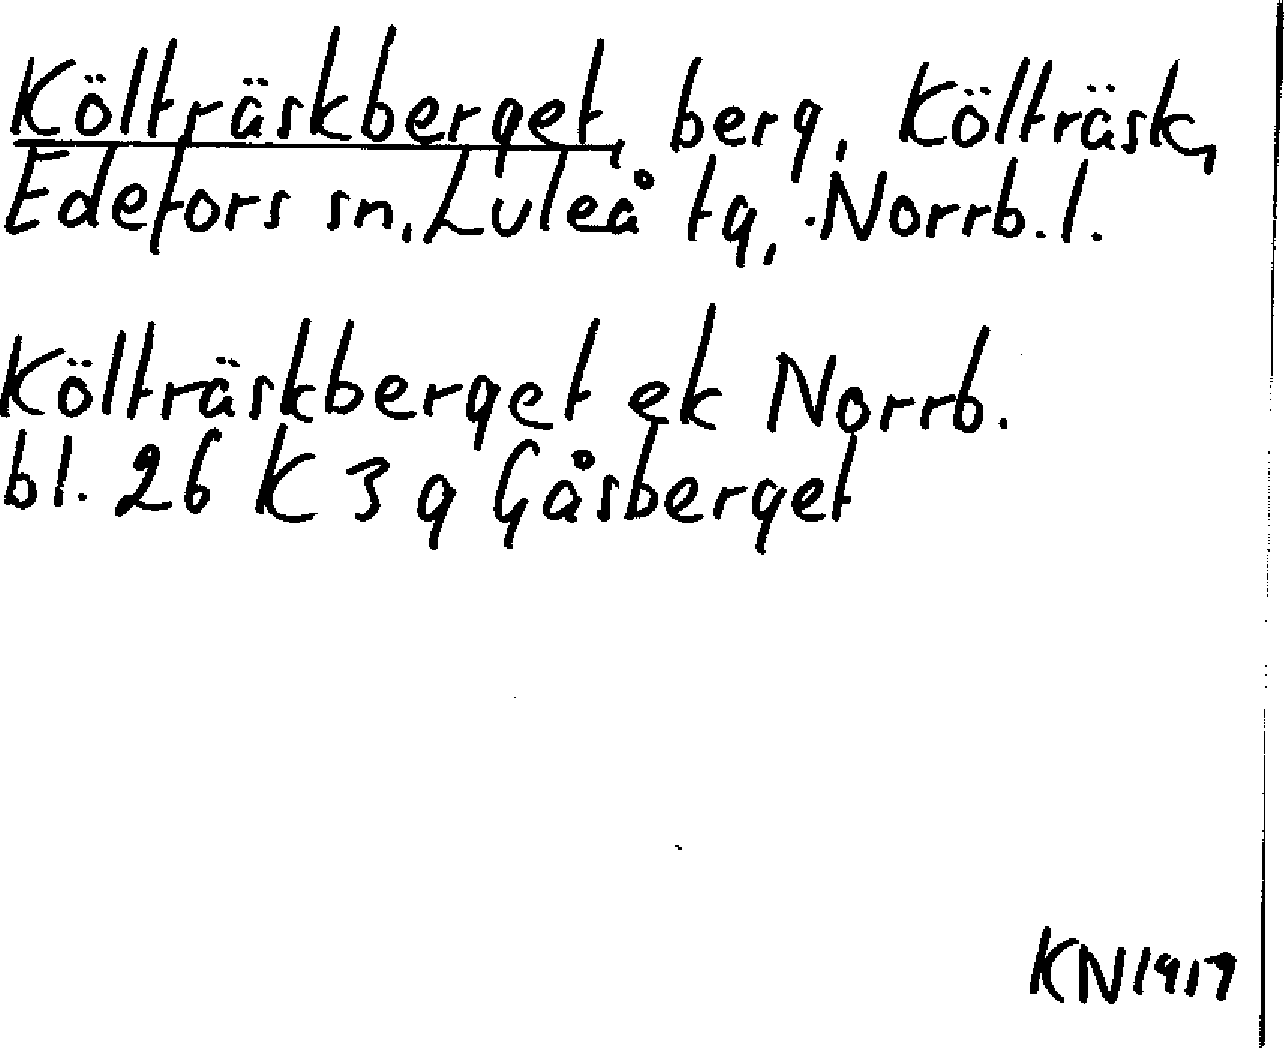 Költräskberget, berg, Költräsk,
Edefors sn, Luleå tg, Norrb. l.
Költräskberget ek Norrb.
bl. 26 K 3 g Gåsberget
KN 1917